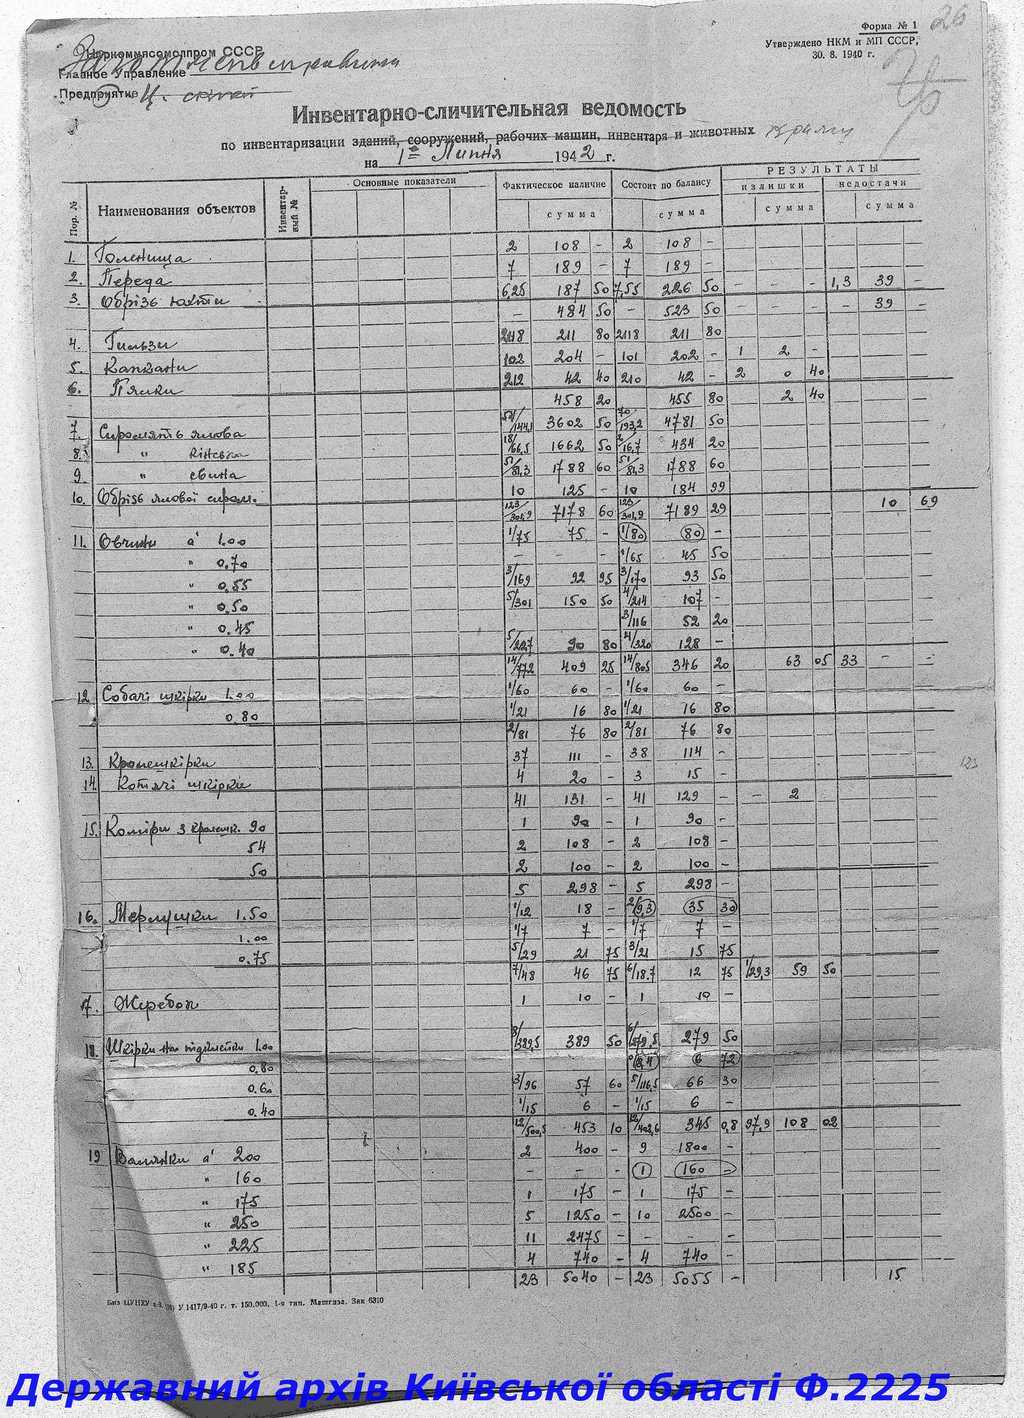 26
Форма № 1
Утверждено НКМ и МП СССР,
30. 8. 1940 г.
Наркоммясомолпром СССР
Главное Управление
Предприятие Ц.
Инвентарно-сличительная ведомость
по инвентаризации зданий, сооружений, рабочих машин, инвентаря и животных
на 1го Липня 1942 г.
Пор. № Наименования объектов Инвентарный № Основные показатели Фактическое наличие Состоит по балансу РЕЗУЛЬТАТЫ
излишки недостачи
сумма сумма сумма сумма
1. Голенища 2 108 - 2 108 -
2. Переда 7 189 - 7 189 -
3. Обрізь юхти 6,25 187 50 7,55 226 50 - - - 1,3 39 -
- 484 50 - 523 50 - - - - 39 -
4. Гильзи 2118 211 80 2118 211 80
5. Капкани 102 204 - 101 202 - 1 2 -
6. Пялки 212 42 40 210 42 - 2 0 40
458 20 455 80 2 40
7. Сиромять ялова 3602 50 4781 50
8. " кінська 1662 50 434 20
9 " свина 51/81,3 1788 60 51/81,3 1788 60
10. Обрізь ялової сиром. 10 125 - 10 184 99
123/301,9 7178 60 123/301,9 7189 29 10 69
11. Овчини а 1.00 1/75 75 - 1/80 80 -
" 0.70 - - - 1/65 45 50
" 0.55 3/169 92 95 3/170 93 50
" 0.50 5/301 150 50 4/214 107 -
" 0.45 3/116 52 20
" 0.40 5/227 90 80 4/320 128 -
14/772 409 25 14/805 346 20 63 05 33 - -
12 Собачі шкірки 1.00 1/60 60 - 1/60 60 -
0.80 1/21 16 80 1/21 16 80
2/81 76 80 2/81 76 80
13. Кролешкірки 37 111 - 38 114 -
14. Котячі шкірки 4 20 - 3 15 -
41 131 - 41 129 - - 2
15. Коміри з кролешк. 90 1 90 - 1 90 -
54 2 108 - 2 108 -
50 2 100 - 2 100 -
5 298 - 5 298 -
16. Мерлушки 1.50 1/12 18 - 2/9,3 35 30
1.00 1/7 7 - 1/7 7 -
0.75 5/29 21 75 3/21 15 75
7/48 46 75 6/18.7 12 75 1/29,3 59 50
17. Жеребок 1 10 - 1 10 -
18. Шкірки на підклейки 1.00 8/389,5 389 50 6/279,5 279 50
0.80 6 72
0.60 3/96 57 60 5/116,5 66 30
0.40 1/15 6 - 1/15 6 -
12/500,5 453 10 12/402,6 345 0,8 97,9 108 02
19 Валянки а 200 2 400 - 9 1800 -
" 160 - - - 1 160 -
" 175 1 175 - 1 175 -
" 250 5 1250 - 10 2500 -
" 225 11 2475 - - - -
" 185 4 740 - 4 740 -
23 5040 - 23 5055 - 15
У 1417/9-40 г. т. 150.000, 1-я тип. Машгиза. Зак 6310
Державний архів Київської області Ф.2225